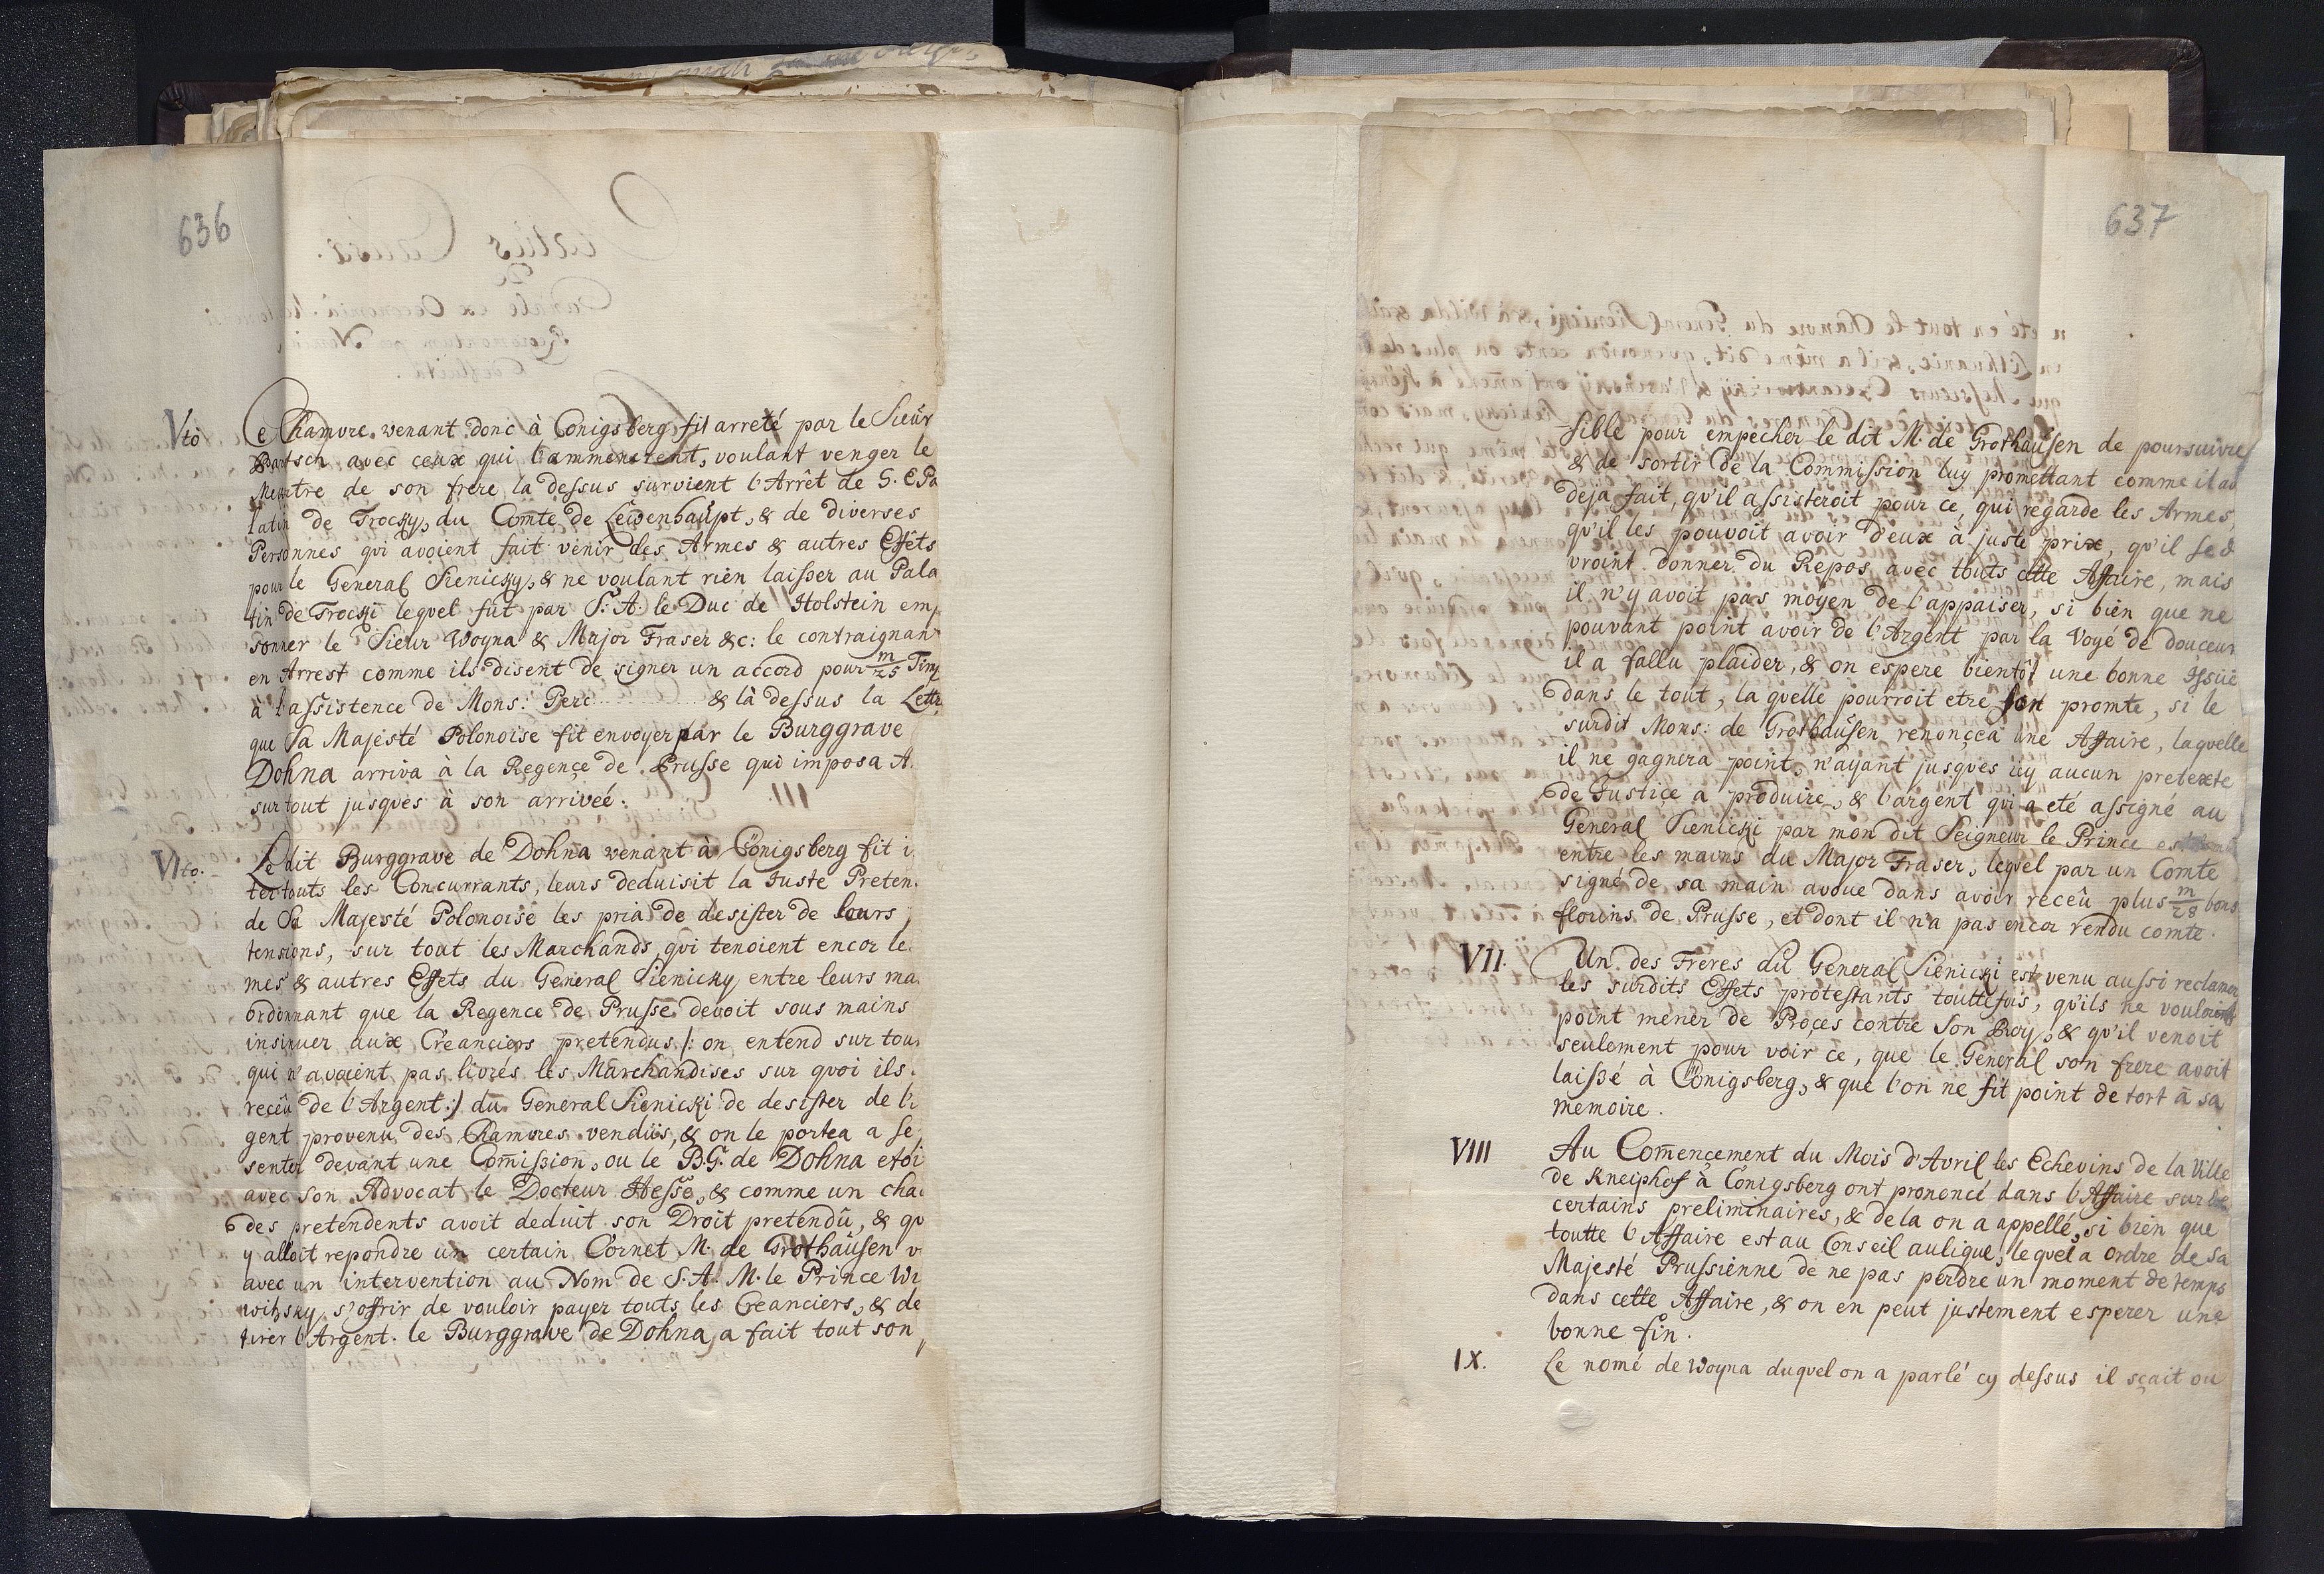 636
Vto Ce Chamvre venant donc à Conigsberg fit arreté par le Sieur
Bartsch avec ceux qui l'ammenerent, voulant venger le
Meurtre de son frere la dessus survient l'Arrêt de S. E Pa
latin de Trocky, du Comte de Leiwenhaüpt, & de diverses
Personnes qui avoient fait venir des Armes & autres Effêts
pour le General Sienicky, & ne voulant rien laisser au Pala
tin de Trocki lequel fût par S. A. le Duc de Holstein emp
sonner le Sieur Woyna & Major Fraser &c: le contraignan
en Arrest comme ils disent de signer un accord pour m/25 Timp
à l'assistence de Mons: Perc & là dessus la Lettr
que Sa Majesté Polonoise fit envoyer par le Burggrave
Dohna arriva à la Regençe de Prusse qui imposa A.
sur tout jusques à son arriveé.
VIto. Le dit Burggrave de Dohna venant à Cönigsberg fit i
ter touts les Concurrants, leurs deduisit la Iuste Preten.
de Sa Majesté Polonoise les pria de desister de leurs
tensions, sur tout les Marchands, qui tenoient encor le
mes & autres Effets du General Sienicky entre leurs ma
ordonnant que la Regence de Prusse devoit sous mains
insinuer aux Creanciers pretendus /: on entend sur tou
qui n'avoient pas livrés les Marchandises sur quoi ils
reçeû de l'Argent :/ du General Sienicki de desister de l'
gent provenu des Chamvres vendüs, & on le portea a se
senter devant une Com̄ission, ou le B.G. de Dohna etoi
avec son Advocat le Docteur Hesse, & comme un cha
des pretendents avoit deduit son Droit pretendû, & qu
y alloit repondre un certain Cornet M. de Grothaüsen v
avec un intervention au Nom de S. A. M. le Prince Wi
witzsky, s'offrir de vouloir payer touts les Creanciers, & de
tirer l'Argent. le Burggrave de Dohna a fait tout son
637
sible pour empecher le dit M. de Grothaüsen de poursuivre
& de sortir de la Commission luy promettant comme il av
deja fait, qu'il assisteroit pour ce, qui regarde les Armes,
qu'il les pouvoit avoir d'eux à juste prix, qu'il se d
vroint donner du Repos avec touts cette Affaire, mais
il n'y avoit pas moyen de l'appaiser, si bien que ne
pouvant point avoir de l'Argent par la Voye de douceur
il a fallu plaider, & on espere bientôt une bonne Issüe
dans le tout, la quelle pourroit etre fort promte, si le
surdit Mons: de Grothaüsen renonçea une Affaire, laquelle
il ne gagnera point, n'ayant jusques icy aucun pretexte
de Iustiçe a produire, & l'argent qui a eté assigné au
General Sienicki par mon dit Seigneur le Prince est
entre les mains du Major Fraser, lequel par un Comte
signé de sa main avoue dans avoir reçeû plus m/28 bons
florins de Prusse, et dont il n'a pas encor rendu comte.
VII. Un des Freres du General Sienicki est venu aussi reclamer
les surdits Effets protestants touttefois, qu'ils ne vouloint
point mener de Proçes contre Son Roy, & qu'il venoit
seulement pour voir ce, que le General son frere avoit
laissé à Cönigsberg, & que l'on ne fit point de tort à sa
memoire.
VIII Au Com̄ençement du Mois d'Avril les Echevins de la Ville
de Kneiphof à Cönigsberg ont prononcé dans l'Affaire sur de
certains preliminaires, & de la on a appellé, si bien que
toutte l'Affaire est au Conseil aulique, lequel a ordre de Sa
Majesté Prussienne de ne pas perdre un moment de temps
dans cette Affaire, & on en peut justement esperer une
bonne fin.
IX. Le nomé de Woyna duquel on a parlé cy dessus il sçait ou